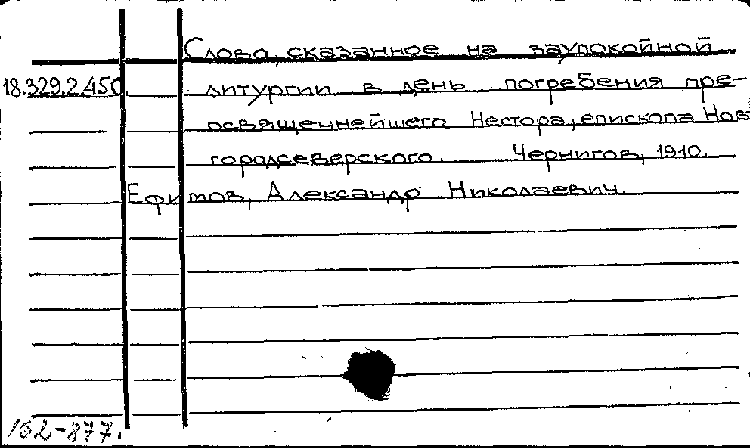 Слово, сказанное на заупокойной
18.329.2.450. литургии в день погребения пре-
освященнейшего Нестора, епископа Нов
городсеверского. Чернигов, 1910.
Ефимов, Александр Николаевич.
162-877.